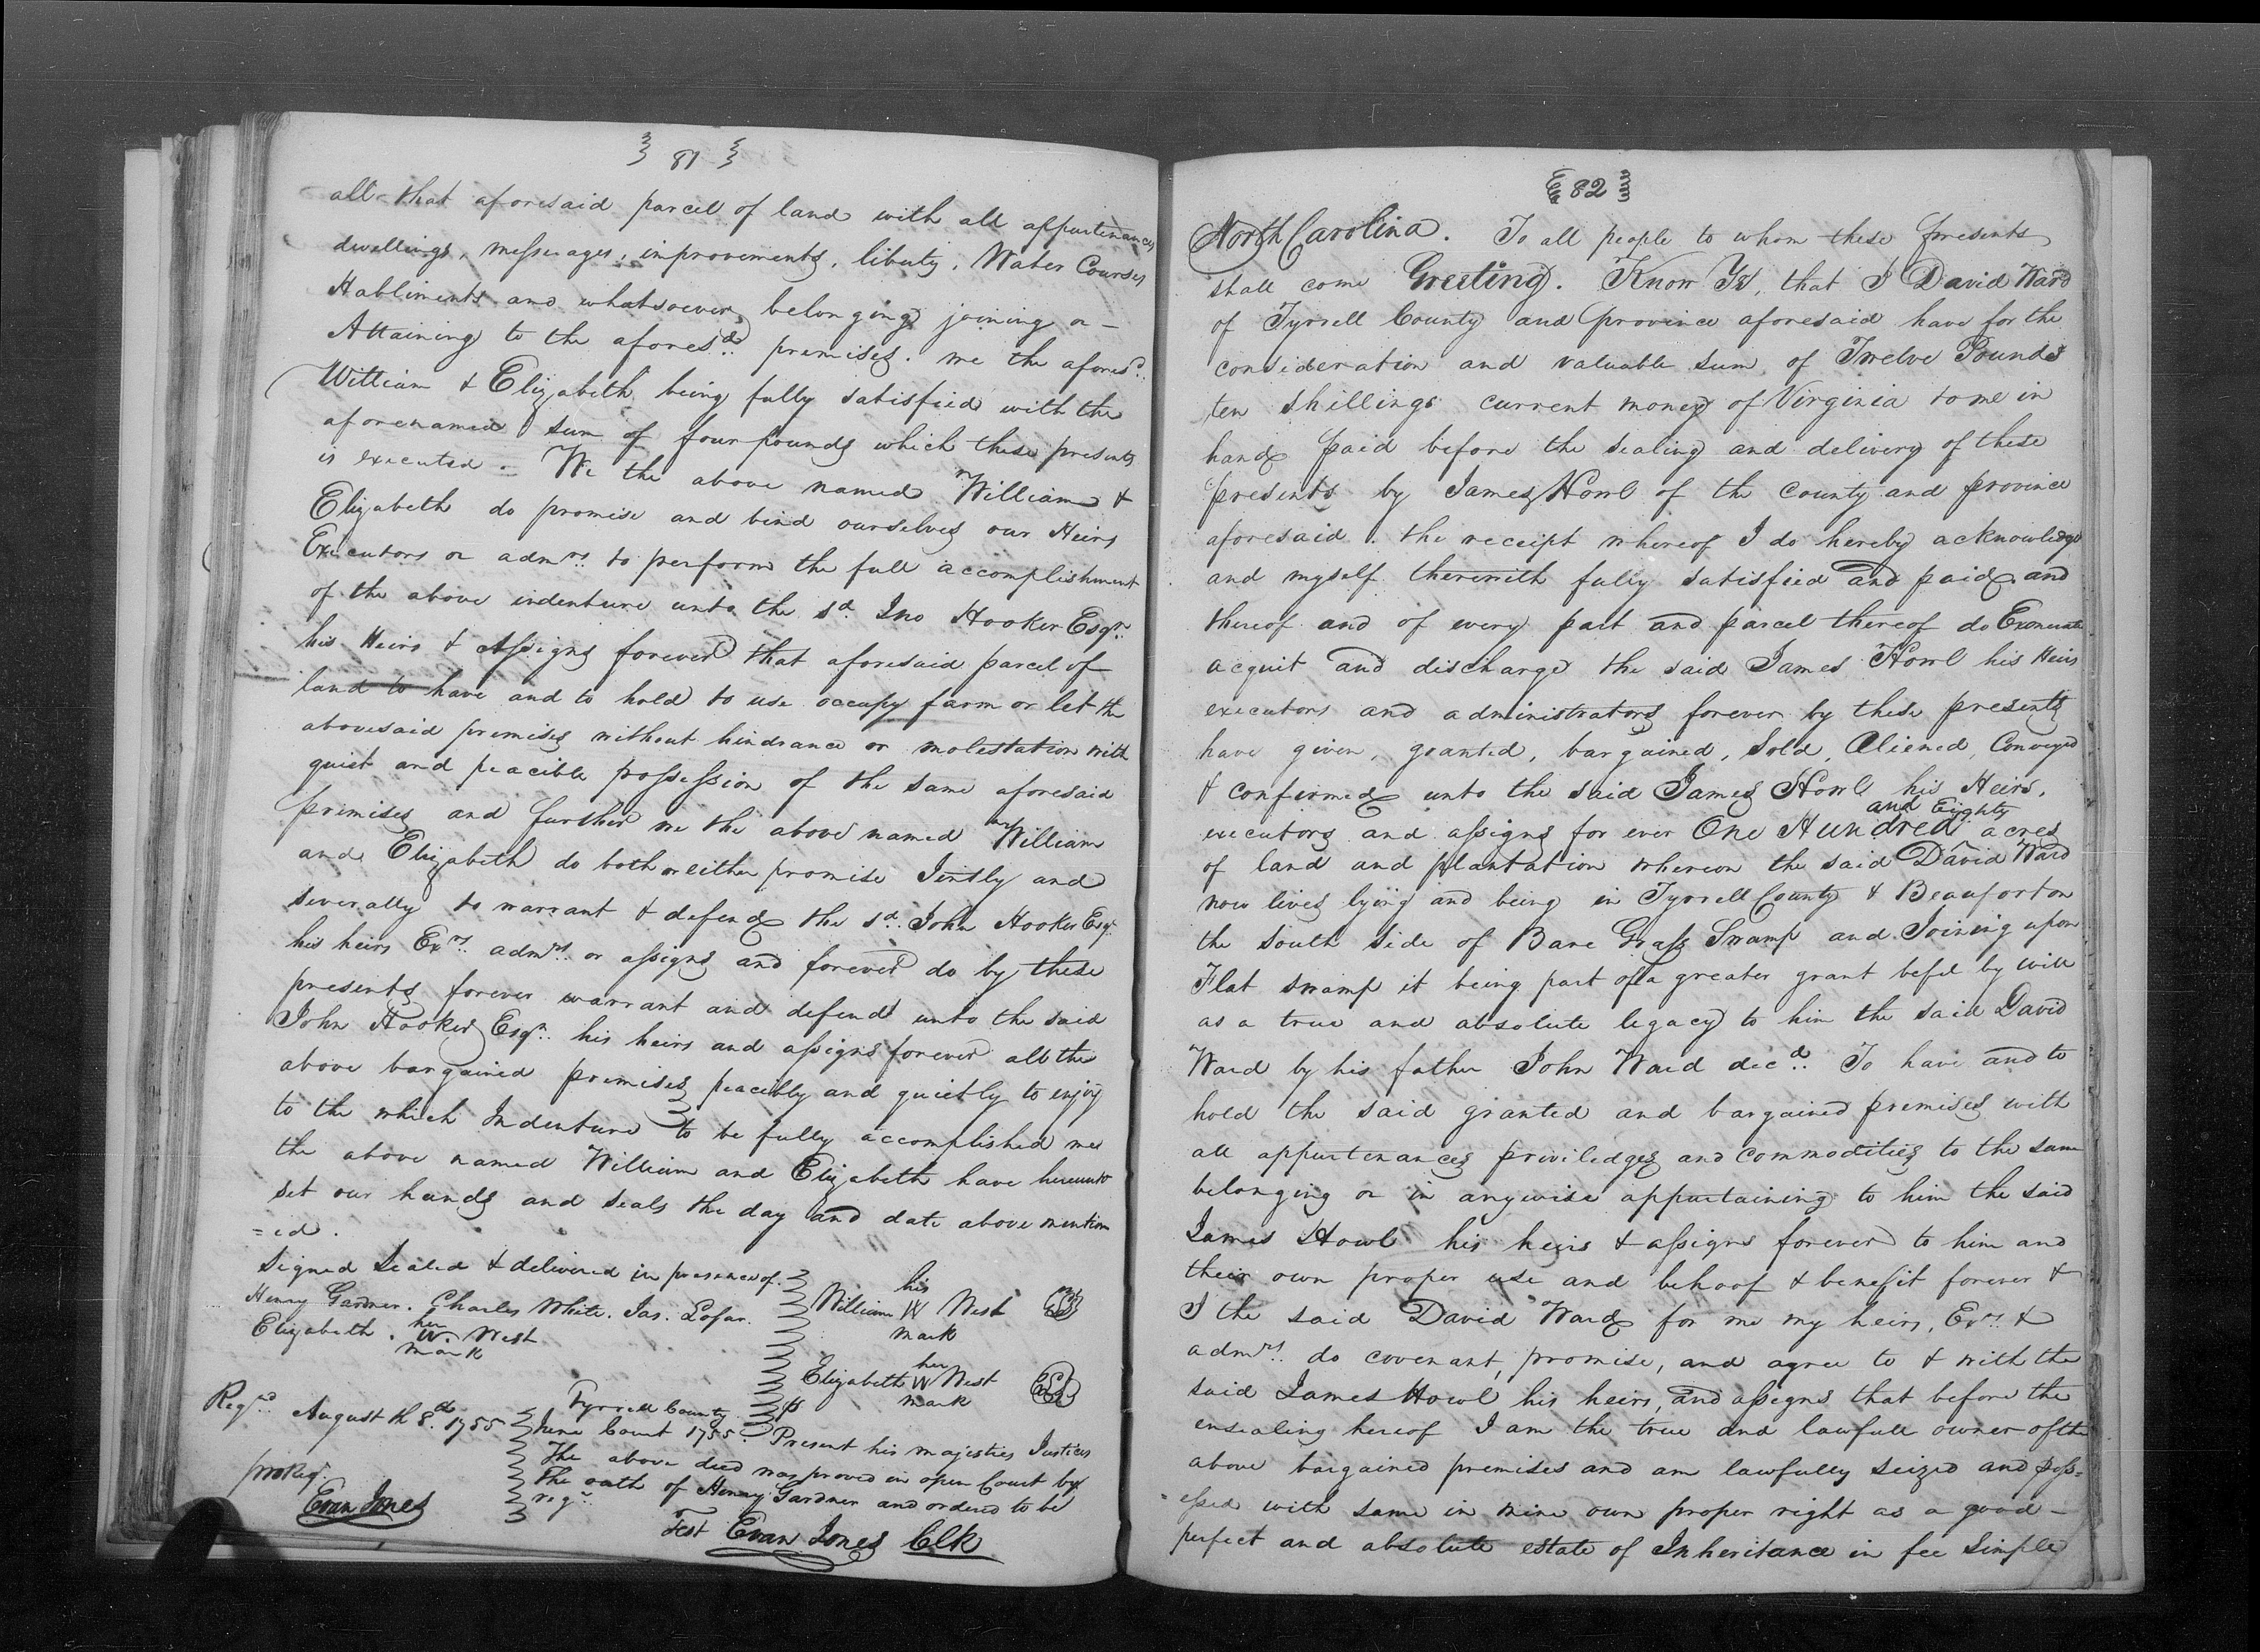 81
all that aforesaid parcel of land with all appurtenances
dwellings, messuages, improvements, liberty, Water Courses
Habliments and whatsoever belonging joining or -
Attaining to the aforesd. premises. we the aforesd.
William & Elizabeth being fully satisfied with the
aforenamed sum of four pounds which these presents
is executed. We the above named William &
Elizabeth do promise and bind ourselves our Heirs
Executors or admrs. to perform the full accomplishment
of the above indenture unto the sd. Jno Hooker Esqr.
his Heirs & Assigns forever that aforesaid parcel of
land to have and to hold to use occupy farm or let the
abovesaid premises without hindrance or molestation with
quiet and peacible possession of the same aforesaid
premises and further we the above named William
and Elizabeth do both or either promise Jintly and
severally to warrant & defend the sd. John Hooker Esqr.
his heirs Exrs. admrs. or assigns and forever do by these
presents forever warrant and defend unto the said
John Hooker Esqr. his heirs and assigns forever all the
above bargained premises peacibly and quietly to enjoy
to the which Indenture to be fully accomplished we
the above named William and Elizabeth have hereunto
set our hands and seals the day and date above mention
=ed.
Signed Sealed & delivered in presence of
Henry Gardner. Charles White. Jas. Lofar.
Elizabeth her W. West
mark
his
William W West
mark
her
Elizabeth W West
mark
Regrd. August th 8th. 1755
pr Regr.
Evan Jones
Tyrrell County ss
June Court 1755. Present his majesties Justices
The above deed was proved in open Court by
the oath of Henry Gardner and ordered to be
regr.
Test Evan Jones Clk
82
North Carolina. To all people to whom these presents
shall come Greeting. Know Ye, that I David Ward
of Tyrrell County and province aforesaid have for the
consideration and valuable sum of Twelve Pounds
ten shillings current money of Virginia to me in
hand paid before the sealing and delivery of these
presents by James Howl of the County and province
aforesaid. the receipt whereof I do hereby acknowledge
and myself therewith fully satisfied and paid and
thereof and of every part and parcel thereof do Exonerate
acquit and discharge the said James Howl his Heirs
executors and administrators forever by these presents
have given, granted, bargained, Sold, Aliened, Conveyed
& confirmed unto the said James Howl his Heirs,
executors and assigns for ever One Hundred and Eighty acres
of land and plantation whereon the said David Ward
now lives lying and being in Tyrrell County & Beaufort on
the south side of Bare Grass Swamp and Joining upon
Flat swamp it being part of a greater grant by will
as a true and absolute legacy to him the said David
Ward by his father John Ward decd. To have and to
hold the said granted and bargained premises with
all appurtenances priviledges and commodities to the same
belonging or in anywise appurtaining to him the said
James Howl his heirs & assigns forever to him and
their own proper use and behoof & benefit forever &
I the said David Ward for me my heirs, Exrs. &
admrs. do covenant, promise, and agree to & with the
said James Howl his heirs, and assigns that before the
ensealing hereof I am the true and lawfull owner of the
above bargained premises and am lawfully seized and poss=
=essed with same in mine own proper right as a good -
perfect and absolute estate of Inheritance in fee Simple